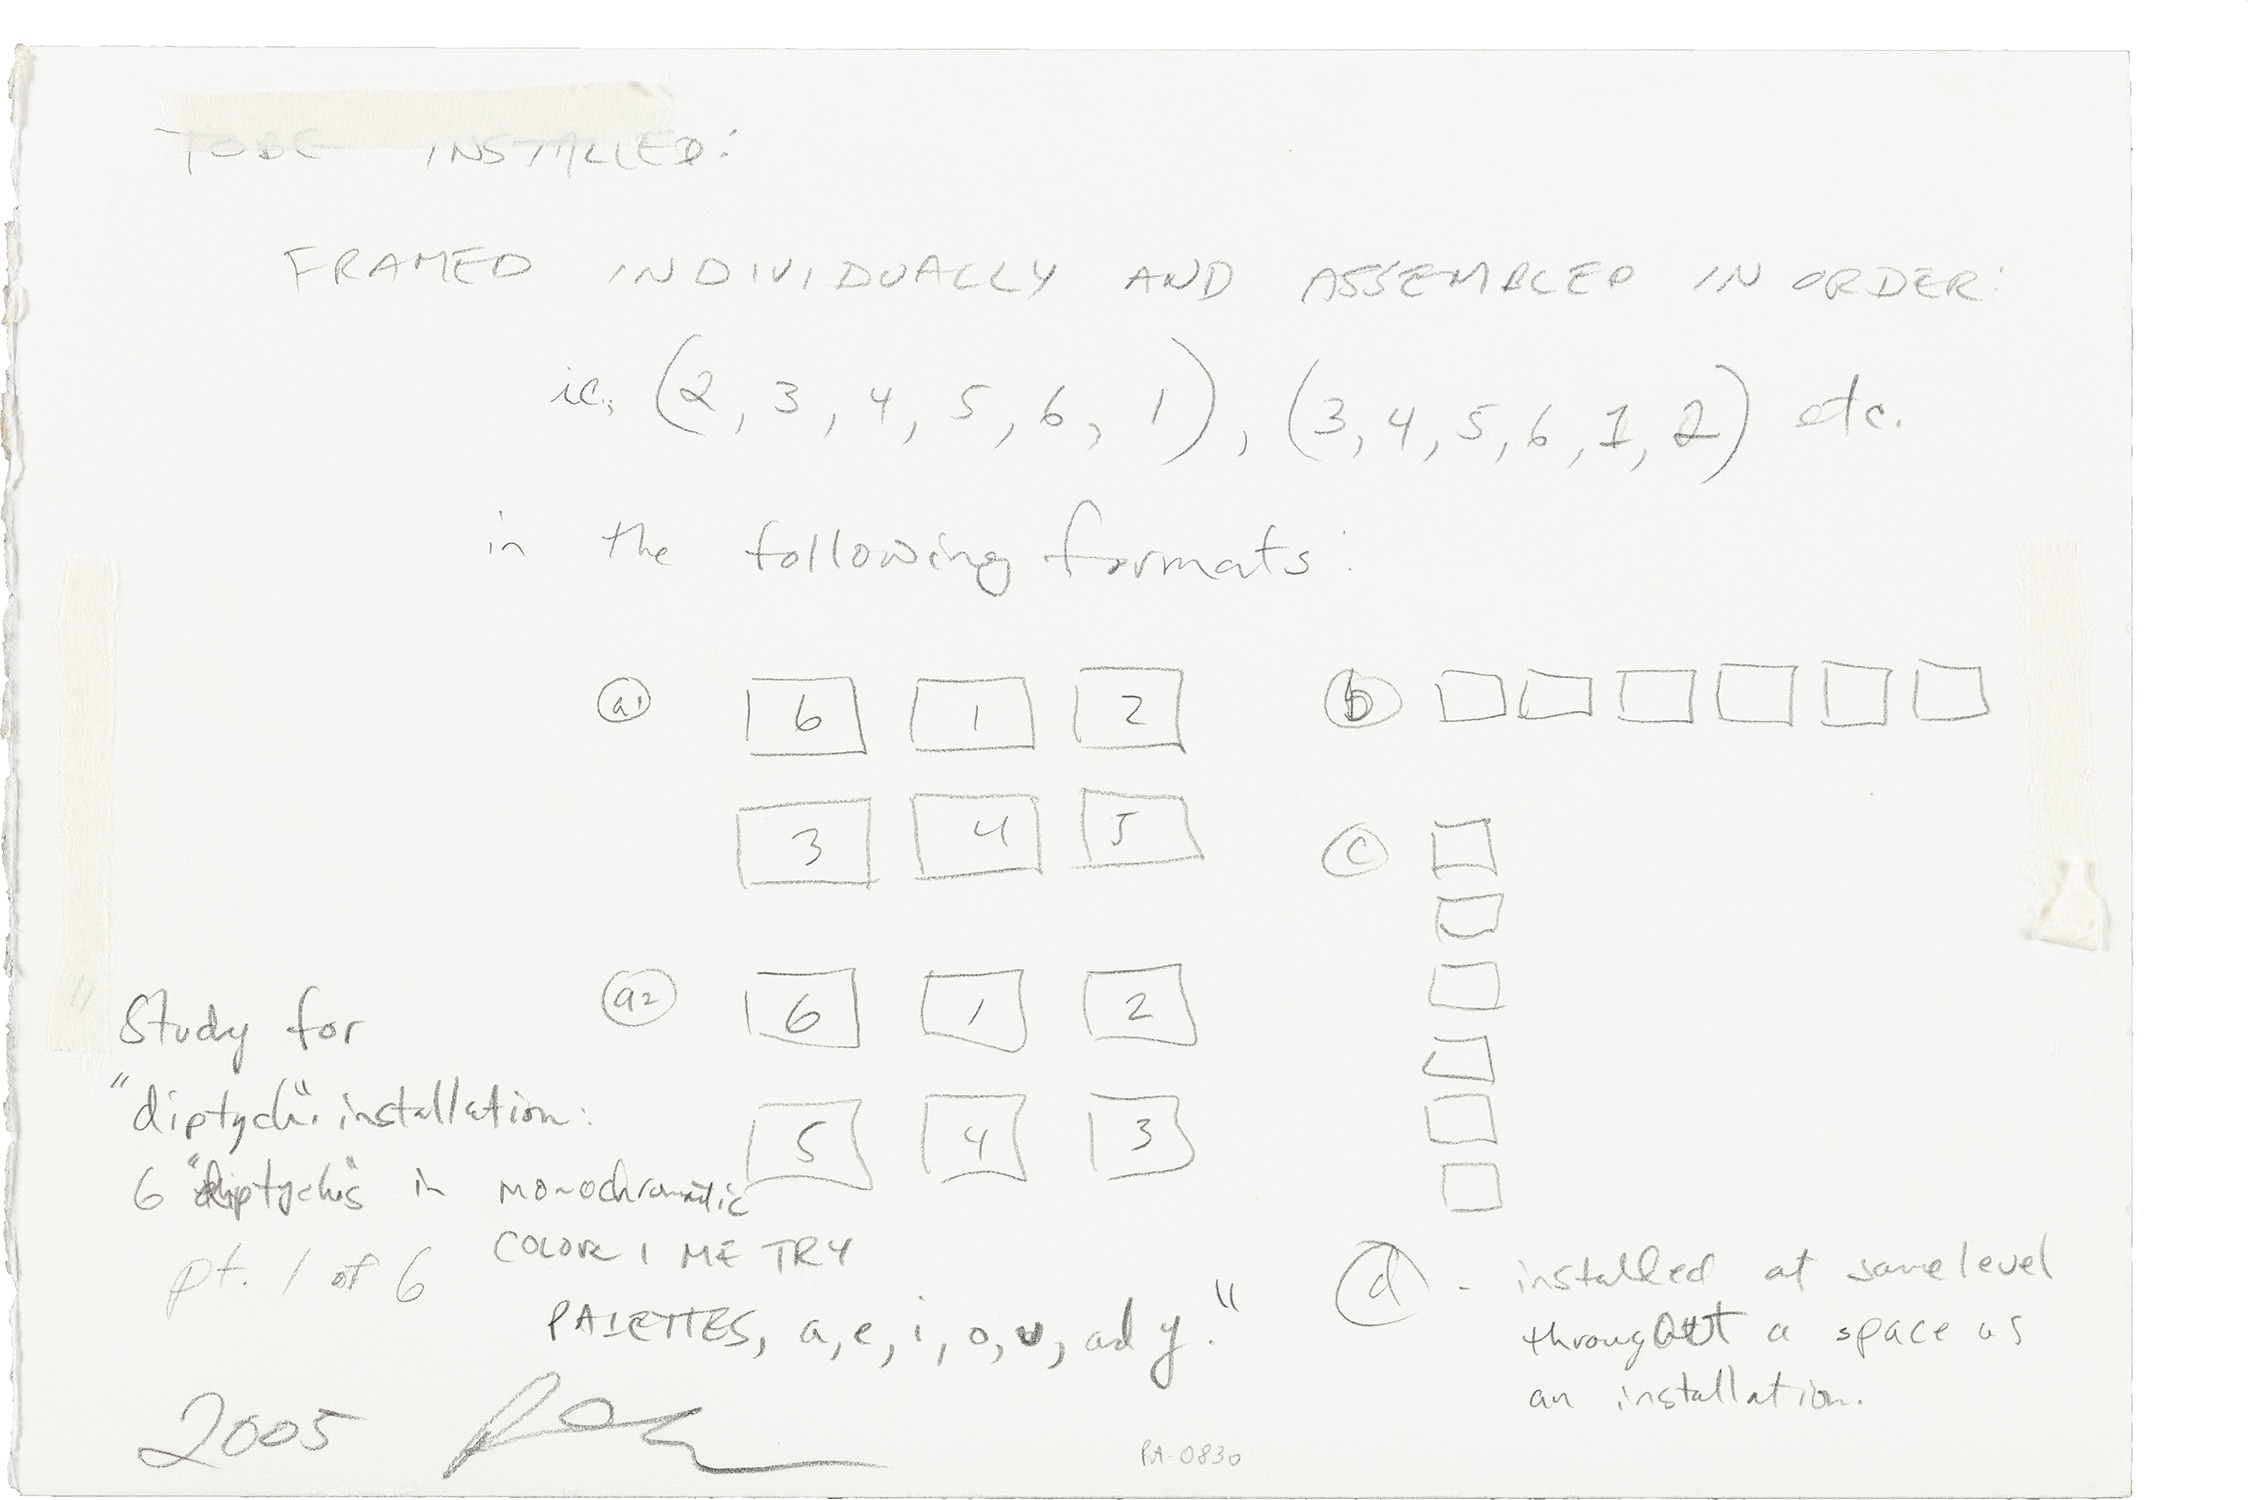 TO BE INSTALLED:
FRAMED INDIVIDUALLY AND ASSEMBLED IN ORDER:
ie; (2, 3, 4, 5, 6, 1), (3, 4, 5, 6, 1, 2) etc.
in the following formats:
a1
6 1 2
3 4 5
a2
6 1 2
5 4 3
b
c
d - installed at same level
throughout a space as
an installation.
"Study for
"diptych" installation:
6 "diptychs" in monochromatic
COLORIMETRY
PALETTES, a, e, i, o, u, and y."
pt. 1 of 6
2005
RA-0830